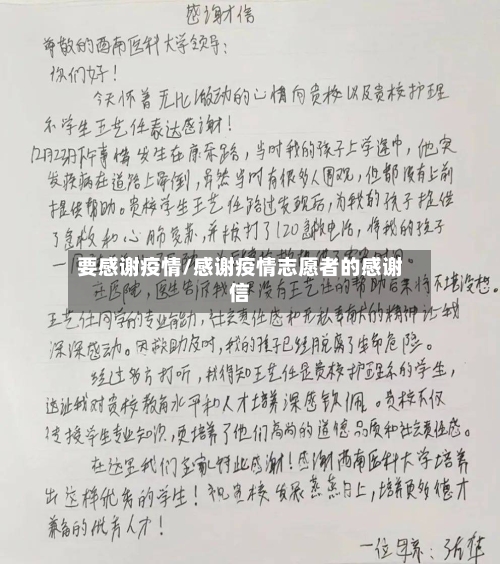 感谢信
尊敬的西南医科大学领导:
你们好!
今天怀着无比激动的心情向贵校以及贵校护理
系学生王艺任表达感谢!
12月23日下午事情发生在康乐路,当时我的孩子上学途中,他突
发疾病在道路上晕倒,虽然当时有很多人围观,但都没有上前
提供帮助。贵校学生王艺任路过发现后,为我的孩子提供
了急救和心肺复苏,并拨打了120急救电话,将我的孩子
一同
要感谢疫情/感谢疫情志愿者的感谢
信
在医院,医生告诉我如果没有王艺任的帮助后果将不堪设想。
王艺任同学的专业能力,社会责任感和无私奉献的精神让我
深深感动。因救助及时,我的孩子已经脱离了生命危险。
经过多方打听,我得知王艺任是贵校护理系的学生,
这让我对贵校教育水平和人才培养深感钦佩。贵校不仅
传授学生专业知识,更培养了他们高尚的道德品质和社会责任感。
在这里我们全家特此感谢!感谢西南医科大学培养
出这样优秀的学生!祝贵校发展蒸蒸日上,培养更多德才
兼备的优秀人才!
一位母亲:张华